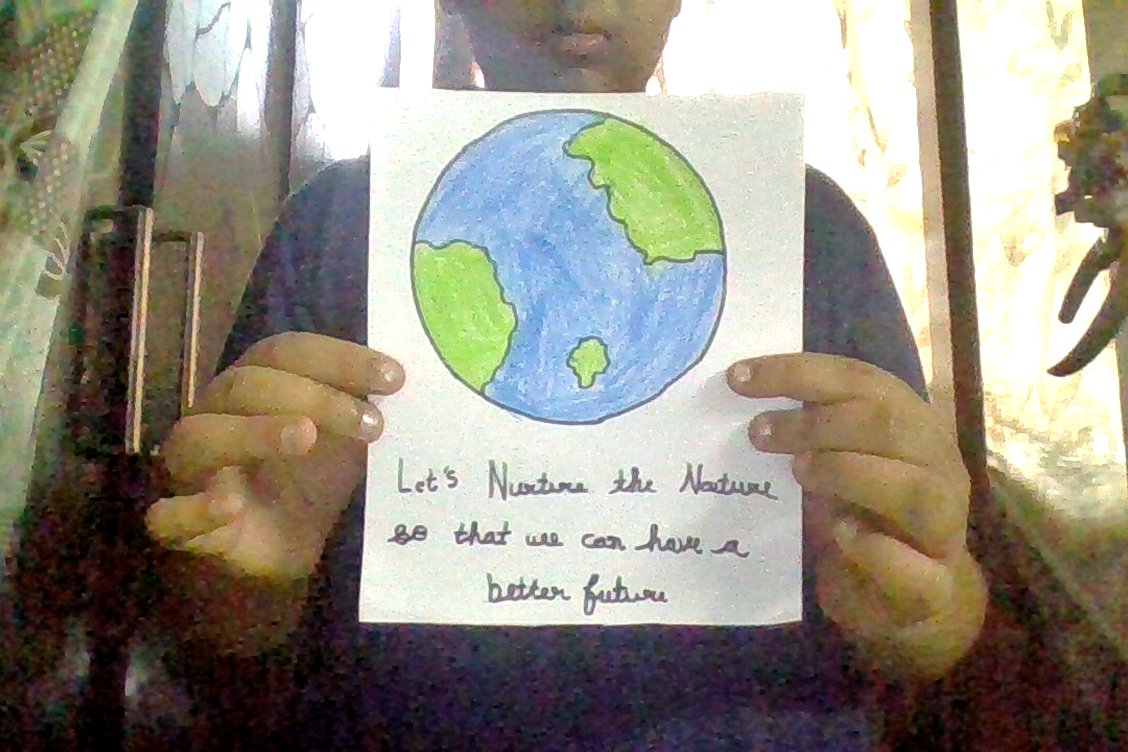 Let's Nurture the Nature
so that we can have a
better future